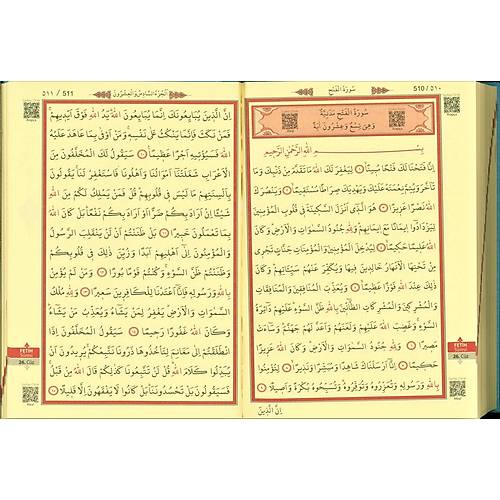 510 / ٥١٠
سُورَةُ الْفَتْحِ
سُورَةُ الْفَتْحِ مَدَنِيَّةٌ
وَهِيَ تِسْعٌ وَعِشْرُونَ اٰيَةً
بِسْمِ اللّٰهِ الرَّحْمٰنِ الرَّحِيمِ
اِنَّا فَتَحْنَا لَكَ فَتْحًا مُبِينًا ﴿١﴾ لِيَغْفِرَ لَكَ اللّٰهُ مَا تَقَدَّمَ مِنْ ذَنْبِكَ وَمَا
تَاَخَّرَ وَيُتِمَّ نِعْمَتَهُ عَلَيْكَ وَيَهْدِيَكَ صِرَاطًا مُسْتَقِيمًا ﴿٢﴾ وَيَنْصُرَكَ
اللّٰهُ نَصْرًا عَزِيزًا ﴿٣﴾ هُوَ الَّذِي اَنْزَلَ السَّكِينَةَ فِي قُلُوبِ الْمُؤْمِنِينَ
لِيَزْدَادُوا اِيمَانًا مَعَ اِيمَانِهِمْ وَلِلّٰهِ جُنُودُ السَّمٰوَاتِ وَالْاَرْضِ وَكَانَ
اللّٰهُ عَلِيمًا حَكِيمًا ﴿٤﴾ لِيُدْخِلَ الْمُؤْمِنِينَ وَالْمُؤْمِنَاتِ جَنَّاتٍ تَجْرِي
مِنْ تَحْتِهَا الْاَنْهَارُ خَالِدِينَ فِيهَا وَيُكَفِّرَ عَنْهُمْ سَيِّـَٔاتِهِمْ وَكَانَ
ذٰلِكَ عِنْدَ اللّٰهِ فَوْزًا عَظِيمًا ﴿٥﴾ وَيُعَذِّبَ الْمُنَافِقِينَ وَالْمُنَافِقَاتِ
وَالْمُشْرِكِينَ وَالْمُشْرِكَاتِ الظَّانِّينَ بِاللّٰهِ ظَنَّ السَّوْءِ عَلَيْهِمْ دَائِرَةُ
السَّوْءِ وَغَضِبَ اللّٰهُ عَلَيْهِمْ وَلَعَنَهُمْ وَاَعَدَّ لَهُمْ جَهَنَّمَ وَسَاءَتْ
مَصِيرًا ﴿٦﴾ وَلِلّٰهِ جُنُودُ السَّمٰوَاتِ وَالْاَرْضِ وَكَانَ اللّٰهُ عَزِيزًا
حَكِيمًا ﴿٧﴾ اِنَّا اَرْسَلْنَاكَ شَاهِدًا وَمُبَشِّرًا وَنَذِيرًا ﴿٨﴾ لِتُؤْمِنُوا
بِاللّٰهِ وَرَسُولِهِ وَتُعَزِّرُوهُ وَتُوَقِّرُوهُ وَتُسَبِّحُوهُ بُكْرَةً وَاَصِيلًا ﴿٩﴾
اِنَّ الَّذِينَ
FETİH
26. Cüz
511 / ٥١١
اَلْجُزْءُ السَّادِسُ وَالْعِشْرُونَ
اِنَّ الَّذِينَ يُبَايِعُونَكَ اِنَّمَا يُبَايِعُونَ اللّٰهَ يَدُ اللّٰهِ فَوْقَ اَيْدِيهِمْ
فَمَنْ نَكَثَ فَاِنَّمَا يَنْكُثُ عَلٰى نَفْسِهِ وَمَنْ اَوْفٰى بِمَا عَاهَدَ عَلَيْهُ
اللّٰهَ فَسَيُؤْتِيهِ اَجْرًا عَظِيمًا ﴿١٠﴾ سَيَقُولُ لَكَ الْمُخَلَّفُونَ مِنَ
الْاَعْرَابِ شَغَلَتْنَا اَمْوَالُنَا وَاَهْلُونَا فَاسْتَغْفِرْ لَنَا يَقُولُونَ
بِاَلْسِنَتِهِمْ مَا لَيْسَ فِي قُلُوبِهِمْ قُلْ فَمَنْ يَمْلِكُ لَكُمْ مِنَ اللّٰهِ
شَيْـًٔا اِنْ اَرَادَ بِكُمْ ضَرًّا اَوْ اَرَادَ بِكُمْ نَفْعًا بَلْ كَانَ اللّٰهُ
بِمَا تَعْمَلُونَ خَبِيرًا ﴿١١﴾ بَلْ ظَنَنْتُمْ اَنْ لَنْ يَنْقَلِبَ الرَّسُولُ
وَالْمُؤْمِنُونَ اِلٰى اَهْلِيهِمْ اَبَدًا وَزُيِّنَ ذٰلِكَ فِي قُلُوبِكُمْ
وَظَنَنْتُمْ ظَنَّ السَّوْءِ وَكُنْتُمْ قَوْمًا بُورًا ﴿١٢﴾ وَمَنْ لَمْ يُؤْمِنْ
بِاللّٰهِ وَرَسُولِهِ فَاِنَّا اَعْتَدْنَا لِلْكَافِرِينَ سَعِيرًا ﴿١٣﴾ وَلِلّٰهِ مُلْكُ
السَّمٰوَاتِ وَالْاَرْضِ يَغْفِرُ لِمَنْ يَشَاءُ وَيُعَذِّبُ مَنْ يَشَاءُ
وَكَانَ اللّٰهُ غَفُورًا رَحِيمًا ﴿١٤﴾ سَيَقُولُ الْمُخَلَّفُونَ اِذَا
انْطَلَقْتُمْ اِلٰى مَغَانِمَ لِتَاْخُذُوهَا ذَرُونَا نَتَّبِعْكُمْ يُرِيدُونَ اَنْ
يُبَدِّلُوا كَلَامَ اللّٰهِ قُلْ لَنْ تَتَّبِعُونَا كَذٰلِكُمْ قَالَ اللّٰهُ مِنْ قَبْلُ
فَسَيَقُولُونَ بَلْ تَحْسُدُونَنَا بَلْ كَانُوا لَا يَفْقَهُونَ اِلَّا قَلِيلًا ﴿١٥﴾
FETİH
26. Cüz